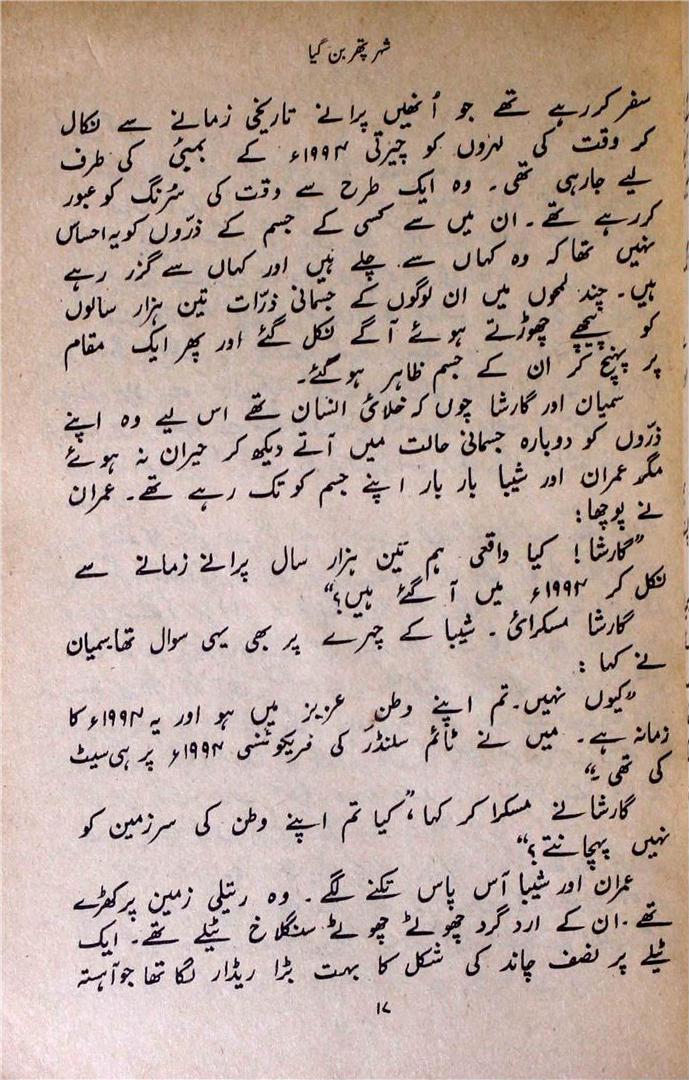 شہر پتھر بن گیا
سفر کر رہے تھے جو اُنھیں پرانے تاریخی زمانے سے نکال
کر وقت کی لہروں کو چیرتی ۱۹۹۴ء کے بمبئی کی طرف
لیے جارہی تھی۔ وہ ایک طرح سے وقت کی سُرنگ کو عبور
کررہے تھے۔ ان میں سے کسی کے جسم کے ذرّوں کو یہ احساس
نہیں تھا کہ وہ کہاں سے چلے ہیں اور کہاں سے گزر رہے
ہیں۔ چند لمحوں میں ان لوگوں کے جسمانی ذرّات تین ہزار سالوں
کو پیچھے چھوڑتے ہوئے آگے نکل گئے اور پھر ایک مقام
پر پہنچ کر ان کے جسم ظاہر ہوگئے۔
سمیان اور گارشا چوں کہ خلائی انسان تھے اس لیے وہ اپنے
ذرّوں کو دوبارہ جسمانی حالت میں آتے دیکھ کر حیران نہ ہوئے
مگر عمران اور شیبا بار بار اپنے جسم کو تک رہے تھے۔ عمران
نے پوچھا:
”گارشا! کیا واقعی ہم تین ہزار سال پرانے زمانے سے
نکل کر ۱۹۹۴ء میں آ گئے ہیں؟“
گارشا مسکرائی۔ شیبا کے چہرے پر بھی یہی سوال تھا۔ سمیان
نے کہا:
”کیوں نہیں۔ تم اپنے وطن عزیز میں ہو اور یہ ۱۹۹۴ء کا
زمانہ ہے۔ میں نے ٹائم سلنڈر کی فریکوئنسی ۱۹۹۴ء پر ہی سیٹ
کی تھی۔“
گارشا نے مسکرا کر کہا، ”کیا تم اپنے وطن کی سرزمین کو
نہیں پہچانتے؟“
عمران اور شیبا آس پاس تکنے لگے۔ وہ ریتلی زمین پر کھڑے
تھے۔ ان کے ارد گرد چھوٹے چھوٹے سنگلاخ ٹیلے تھے۔ ایک
ٹیلے پر نصف چاند کی شکل کا بہت بڑا ریڈار لگا تھا جو آہستہ
۱۷